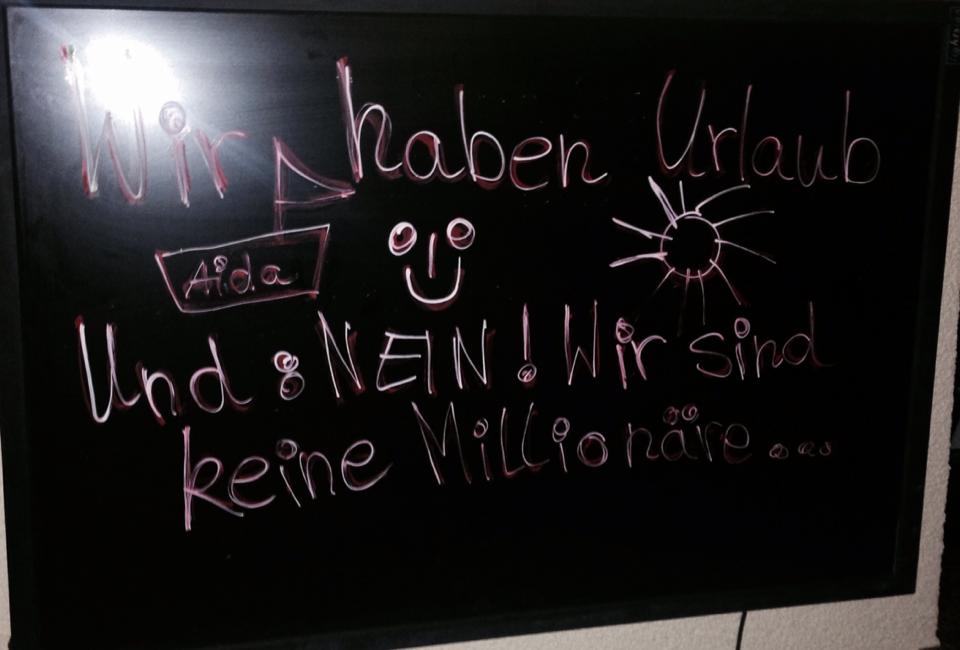 Wir haben Urlaub
Aida
Und: NEIN! Wir sind
keine Millionäre...